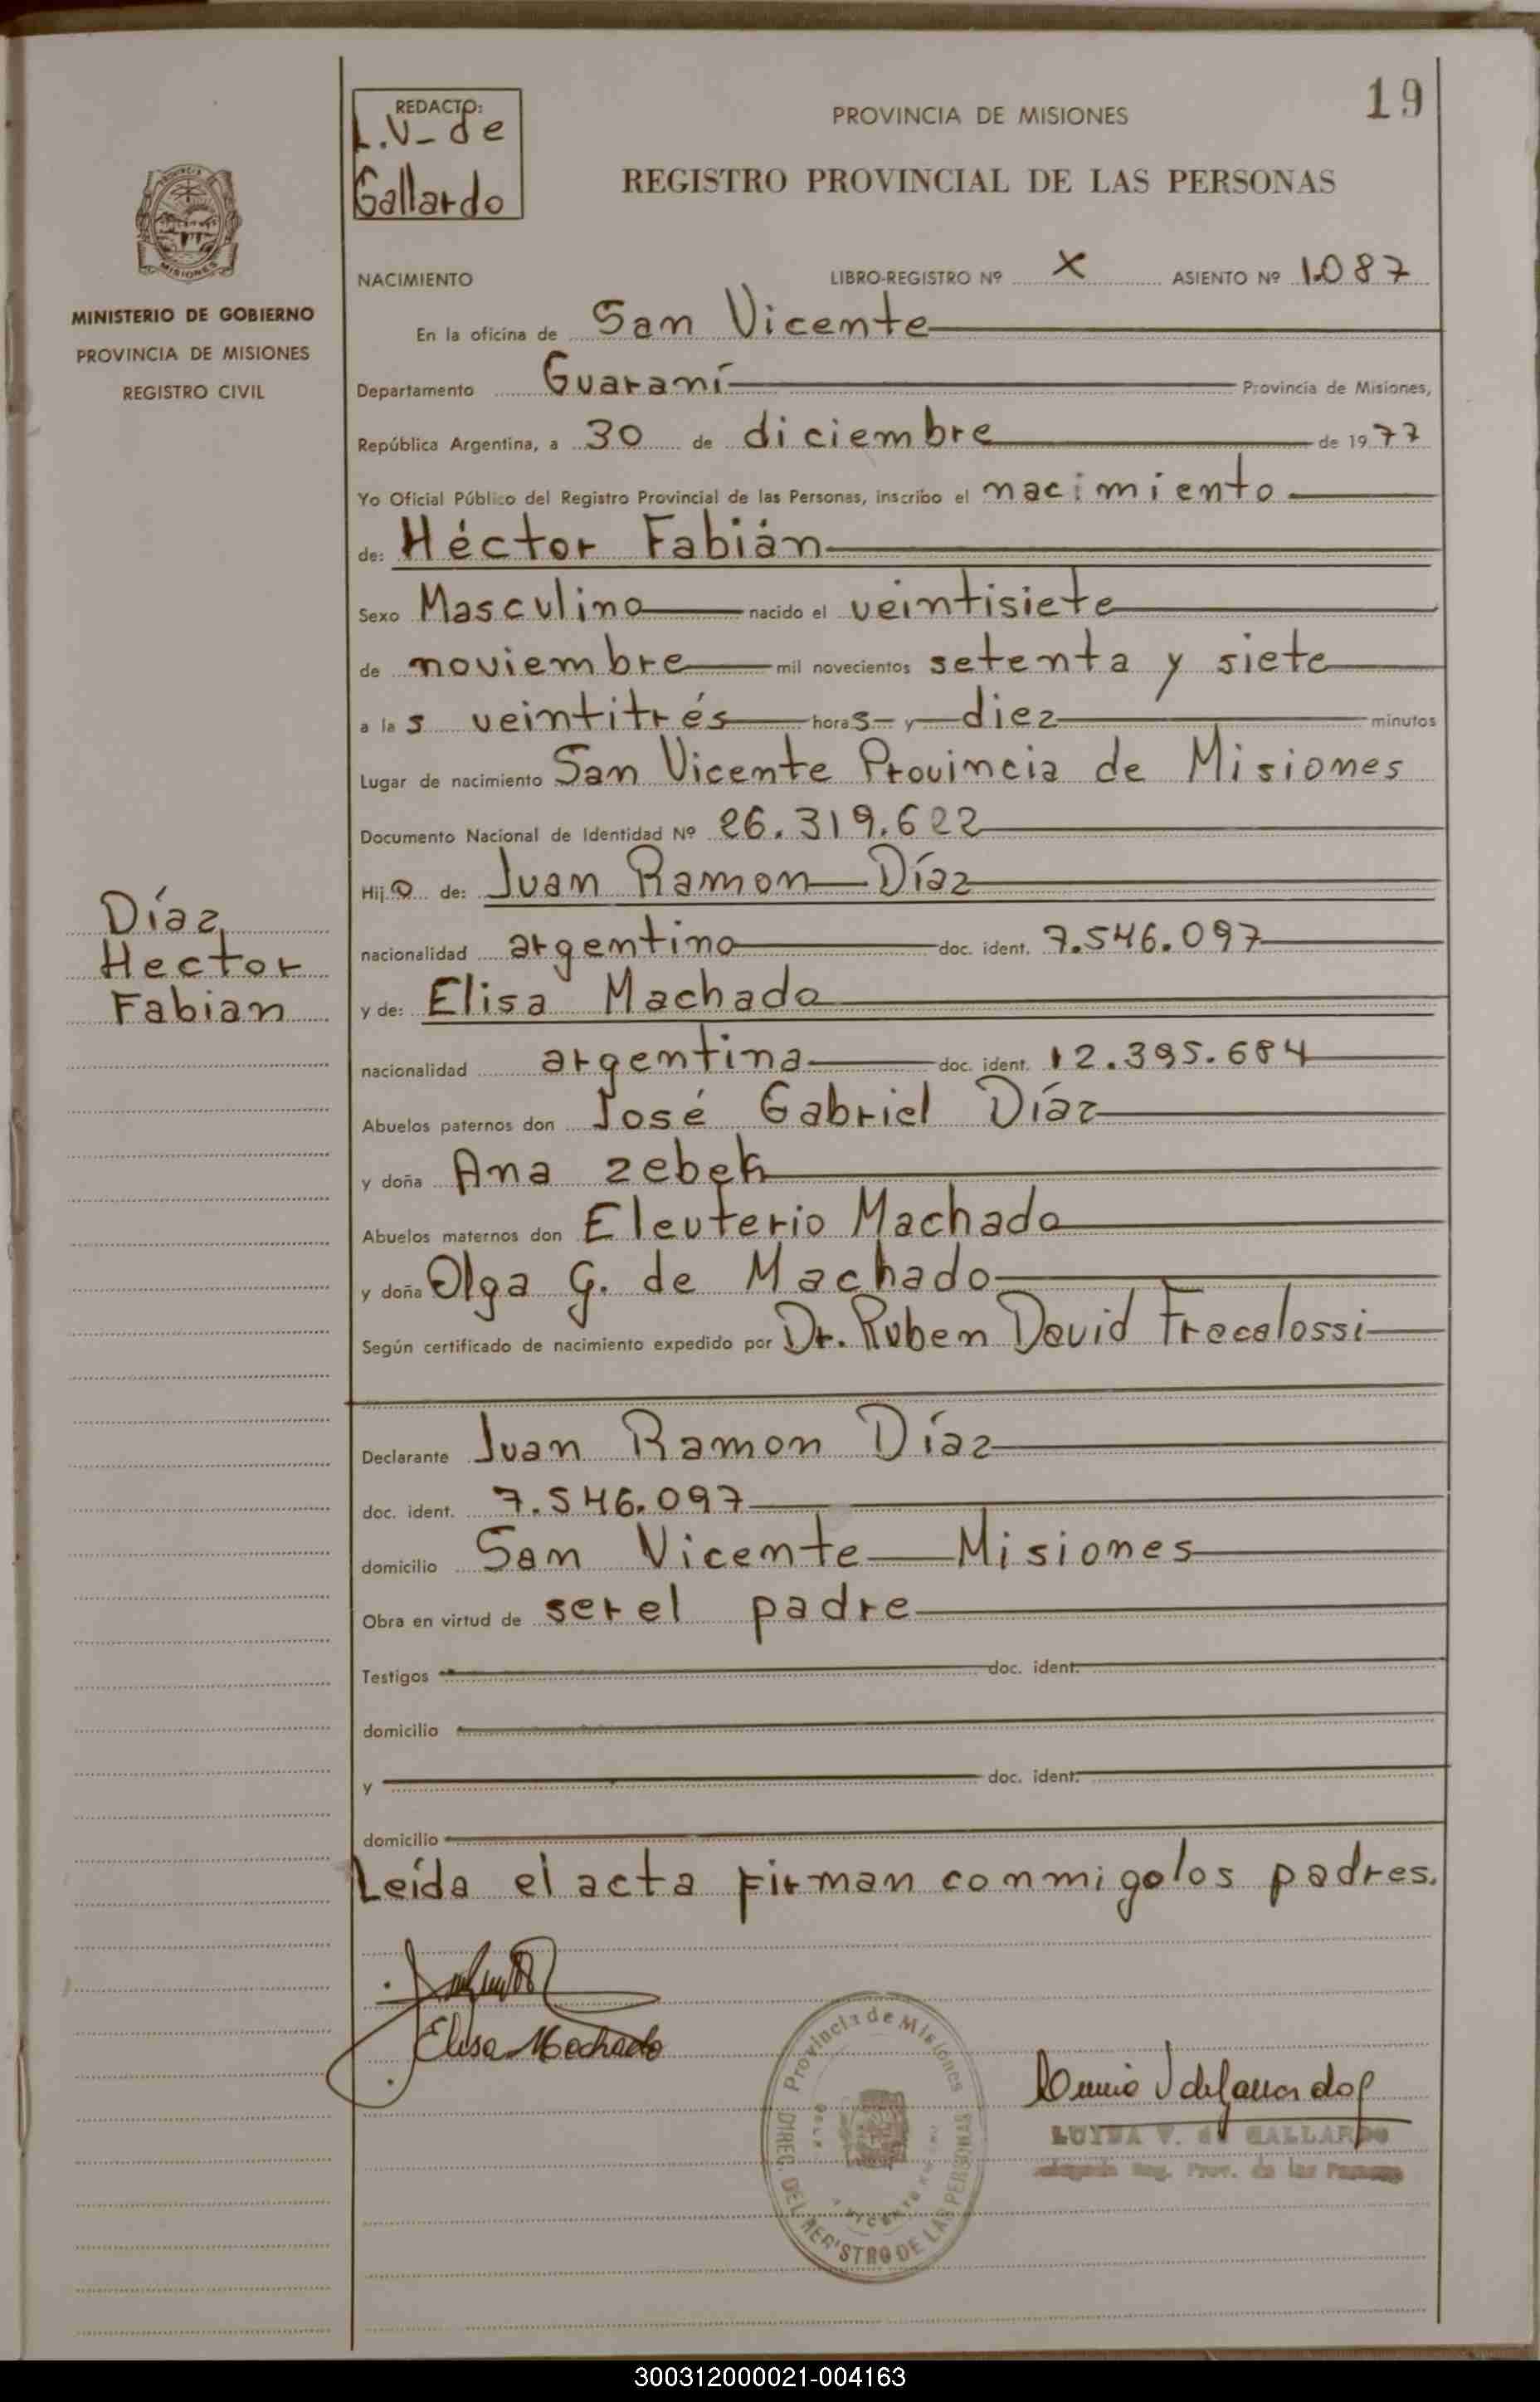 19
REDACTO:
L.V. de
Gallardo
PROVINCIA DE MISIONES
REGISTRO PROVINCIAL DE LAS PERSONAS
MISIONES
MINISTERIO DE GOBIERNO
PROVINCIA DE MISIONES
REGISTRO CIVIL
NACIMIENTO LIBRO-REGISTRO Nº X ASIENTO Nº 1.087
En la oficina de San Vicente
Departamento Guaraní Provincia de Misiones,
República Argentina, a 30 de diciembre de 1977
Yo Oficial Público del Registro Provincial de las Personas, inscribo el nacimiento
de: Héctor Fabián
Sexo Masculino nacido el veintisiete
de noviembre mil novecientos setenta y siete
a las veintitrés horas y diez minutos
Lugar de nacimiento San Vicente Provincia de Misiones
Documento Nacional de Identidad Nº 26.319.622
Hijo de: Juan Ramon Díaz
nacionalidad argentino doc. ident. 7.546.097
y de: Elisa Machado
nacionalidad argentina doc. ident. 12.395.684
Abuelos paternos don José Gabriel Díaz
y doña Ana
Abuelos maternos don Eleuterio Machado
y doña Olga G. de Machado
Según certificado de nacimiento expedido por Dr. Ruben David Fracalossi
Declarante Juan Ramon Díaz
doc. ident. 7.546.097
domicilio San Vicente Misiones
Obra en virtud de ser el padre
Testigos doc. ident.
domicilio
y doc. ident.
domicilio
Leída el acta firman conmigo los padres.
Díaz
Hector
Fabian
Elisa Machado
Provincia de Misiones
DIREC. DEL REGISTRO DE LAS PERSONAS
LUISA V. de GALLARDO
Reg. Prov. de las Personas
300312000021-004163